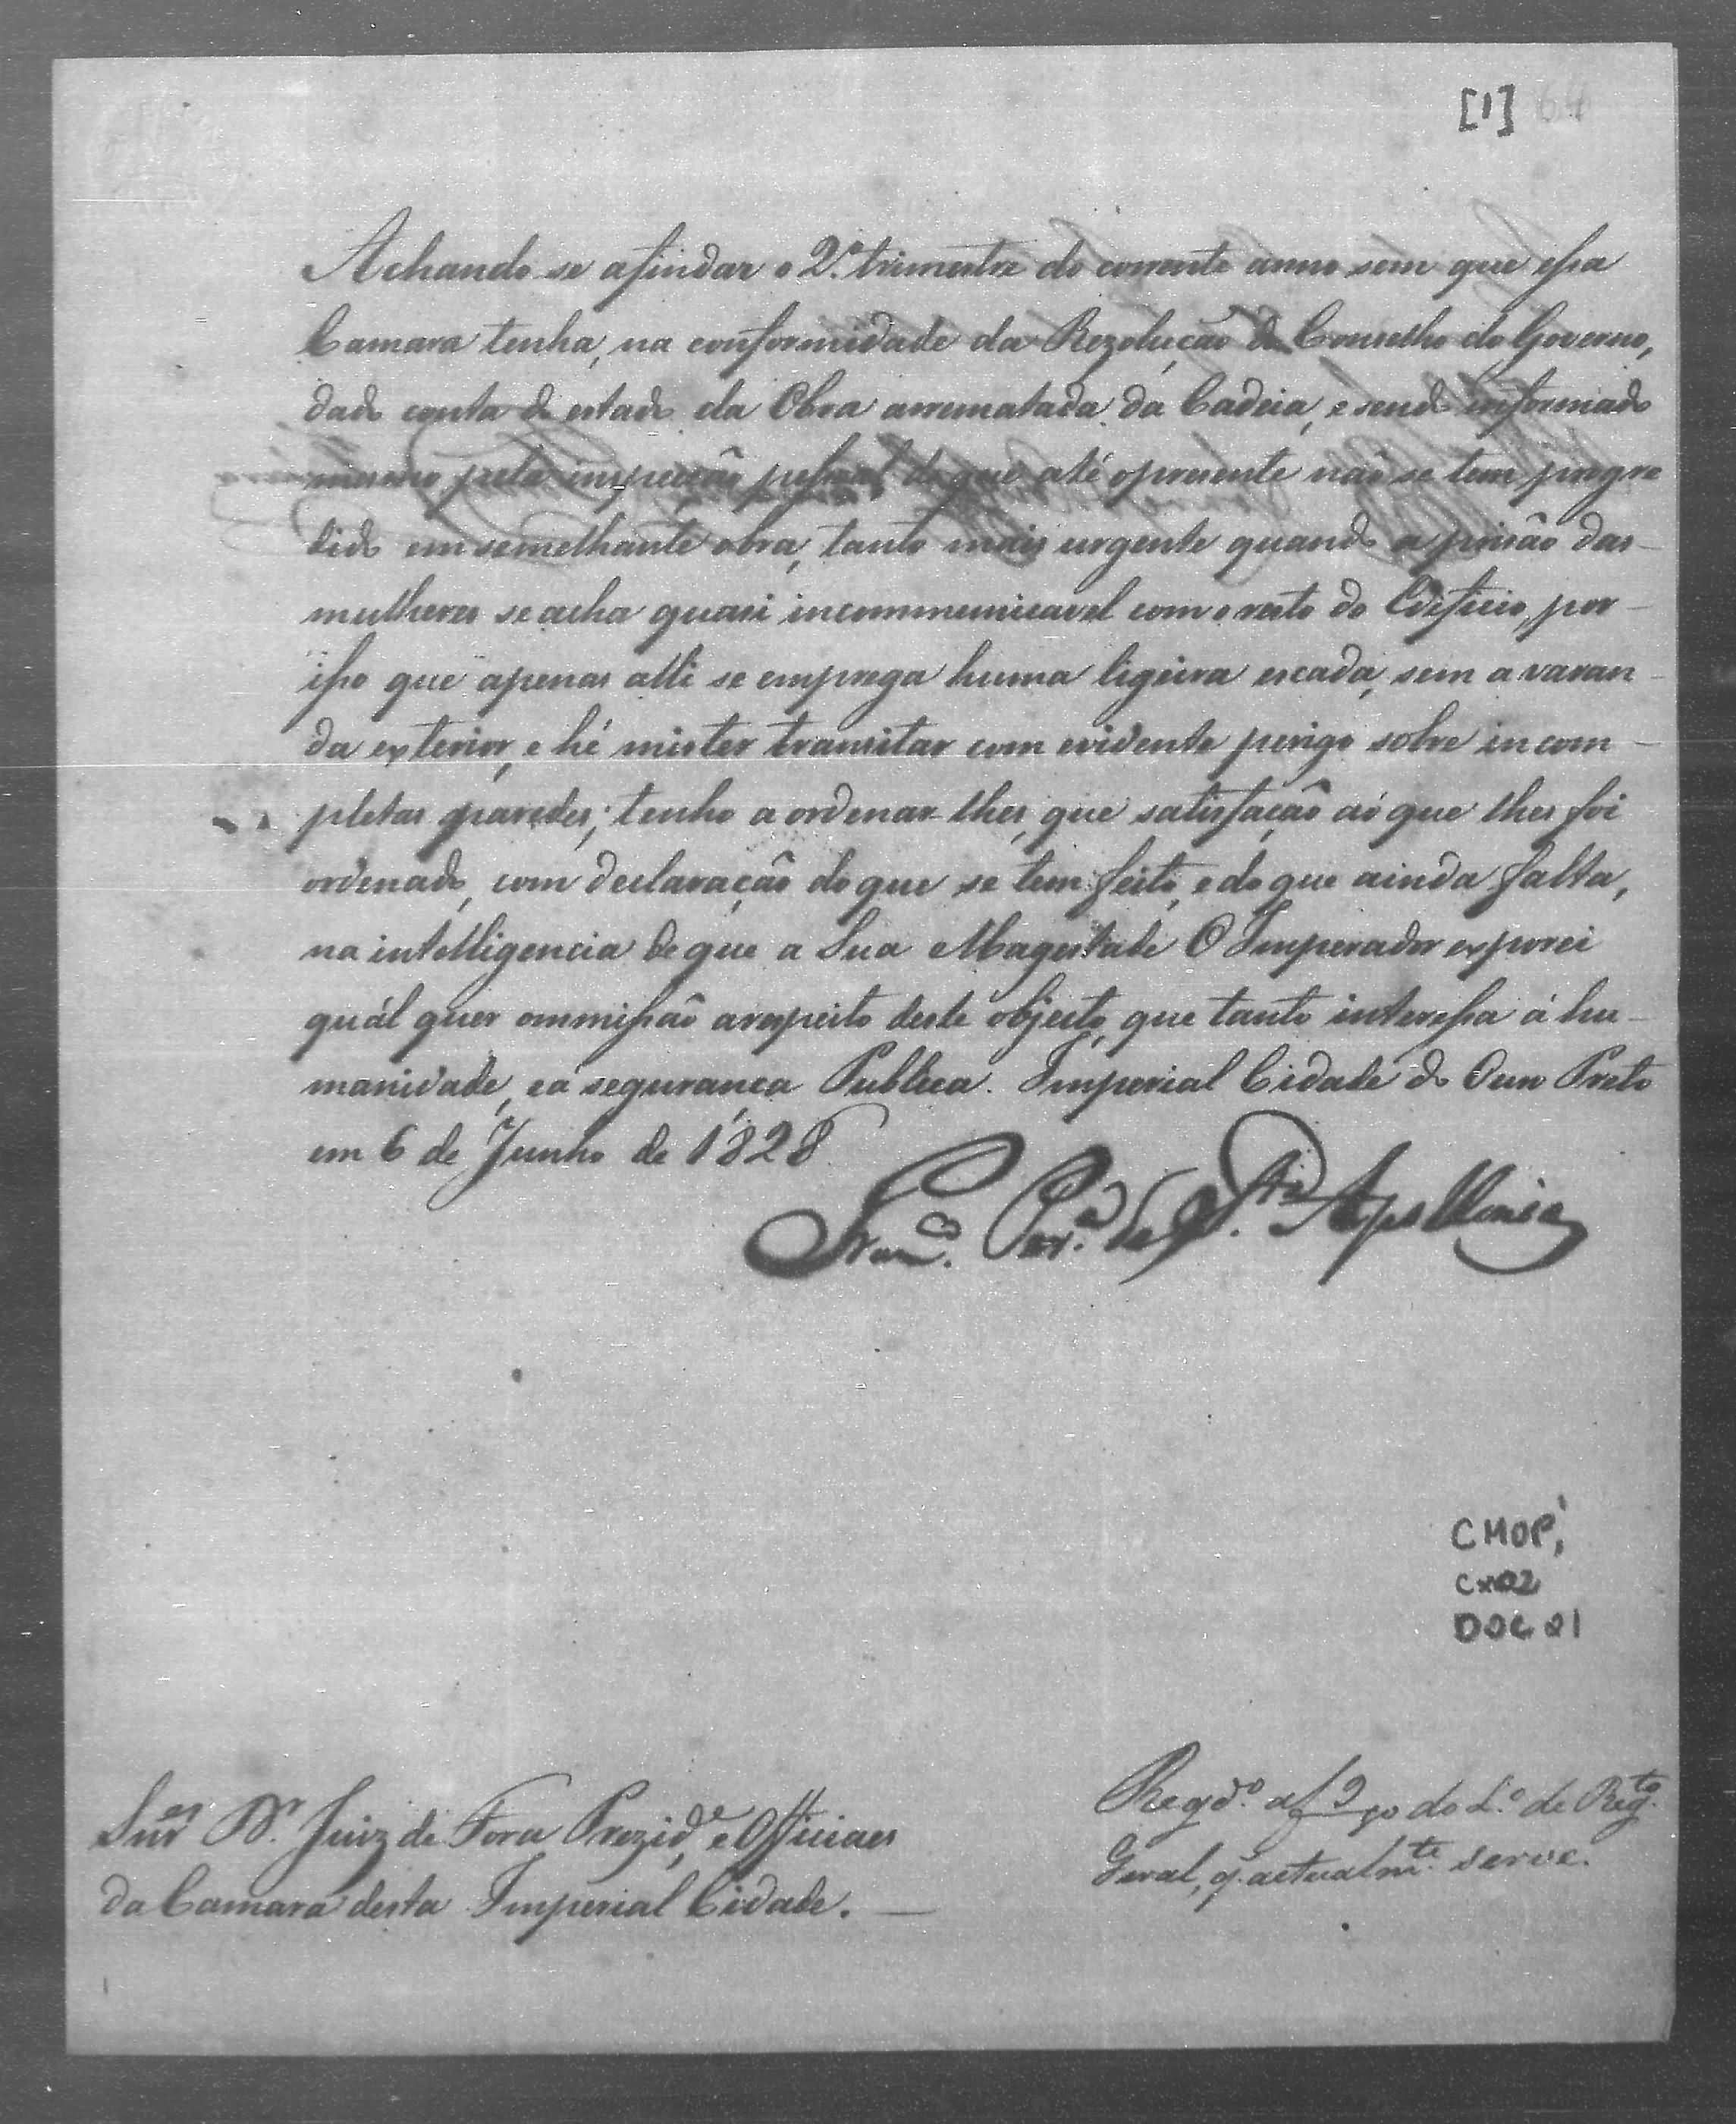 [1] 64
Achando se a findar o 2.º trimestre do corrente anno sem que essa
Camara tenha, na conformidade da Rezolução do Conselho do Governo,
dado conta do estado da Obra arrematada da Cadeia, e sendo informado
mesmo pela inspecção pessoal de que até o presente não se tem progre
dido em semelhante obra, tanto mais urgente quando a prisão das
mulheres se acha quasi incommunicavel com o resto do Edificio, por-
isso que apenas alli se emprega huma ligeira escada, sem a varan-
da exterior, e hé mister transitar com evidente perigo sobre incom-
pletas paredes; tenho a ordenar-lhes, que satisfação ao que lhes foi
ordenado, com declaração do que se tem feito, e do que ainda falta,
na intelligencia de que a Sua Magestade O Imperador exporei
quál quer ommissão a respeito deste objecto, que tanto interessa á hu-
manidade, e á segurança Publica. Imperial Cidade do Ouro Preto
em 6 de Junho de 1828
Fran.co Per.a de S.ta Apollonia
CMOP,
Cx02
DOC 21
Snr.es Dr. Juiz de Fora Prezid.e, e Officiaes
da Camara desta Imperial Cidade.
Regd.º a f do L.º de Reg.to
Geral, q. actualm.te serve.